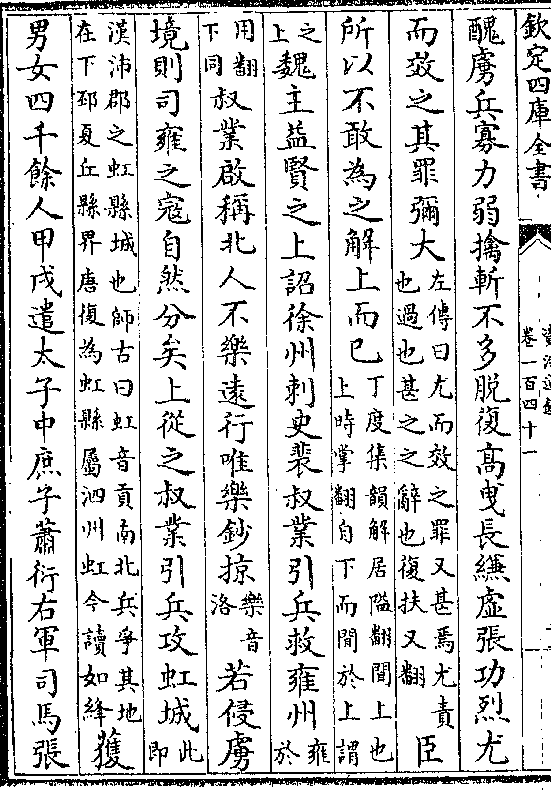 欽定四庫全書
資治通鑑
卷一百四十一
醜虜兵寡力弱擒斬不多脫復高曳長縑虛張功烈尤
而效之其罪彌大左傳曰尤而效之罪又甚焉尤責也過也甚之之辭也復扶又翻臣
所以不敢為之解上而已丁度集韻解居隘翻聞上也上時掌翻自下而聞於上謂
之上魏主益賢之上詔徐州刺史裴叔業引兵救雍州雍於
用翻下同叔業啟稱北人不樂遠行唯樂鈔掠樂音洛若侵虜
境則司雍之寇自然分矣上從之叔業引兵攻虹城此即
漢沛郡之虹縣城也師古曰虹音貢南北兵爭其地在下邳夏丘縣界唐復為虹縣屬泗州虹今讀如絳獲
男女四千餘人甲戌遣太子中庶子蕭衍右軍司馬張